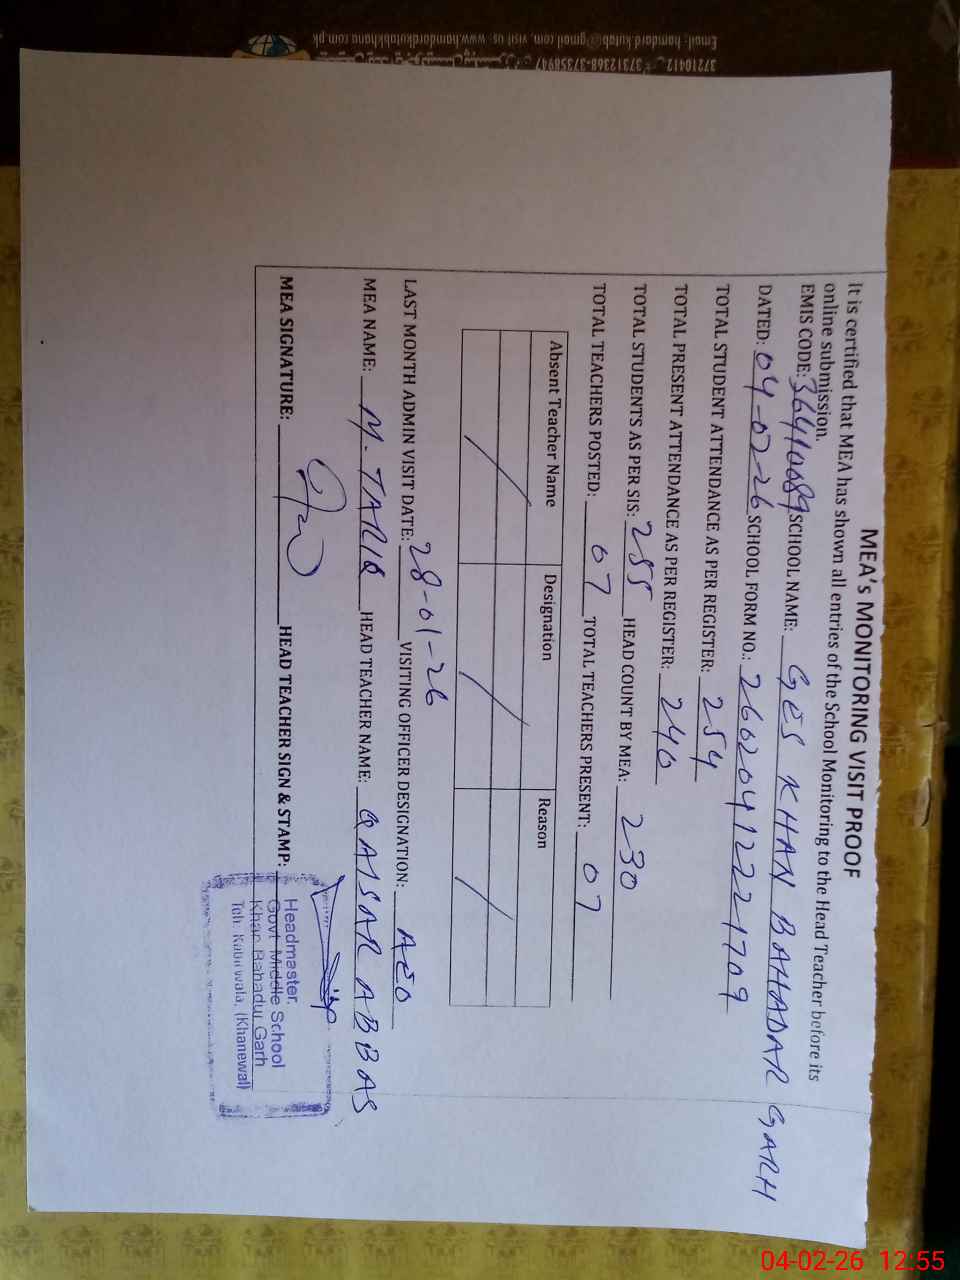 37210412 - 37312368-37358947
Email: hamdard.kutab@gmail.com, visit us: www.hamdardkutabkhana.com.pk
MEA's MONITORING VISIT PROOF
It is certified that MEA has shown all entries of the School Monitoring to the Head Teacher before its
online submission.
EMIS CODE: 36410089 SCHOOL NAME: GES KHAN BAHADAR GARH
DATED: 04-02-26 SCHOOL FORM NO.: 26020412221709
TOTAL STUDENT ATTENDANCE AS PER REGISTER: 254
TOTAL PRESENT ATTENDANCE AS PER REGISTER: 240
TOTAL STUDENTS AS PER SIS: 255 HEAD COUNT BY MEA: 230
TOTAL TEACHERS POSTED: 07 TOTAL TEACHERS PRESENT: 07
Absent Teacher Name Designation Reason
LAST MONTH ADMIN VISIT DATE: 28-01-26 VISITING OFFICER DESIGNATION: AEO
MEA NAME: M. TARIQ HEAD TEACHER NAME: QAISAR ABBAS
MEA SIGNATURE: HEAD TEACHER SIGN & STAMP:
Headmaster,
Govt. Middle School
Khan Bahadur Garh
Teh: Kabirwala, (Khanewal)
04-02-26 12:55